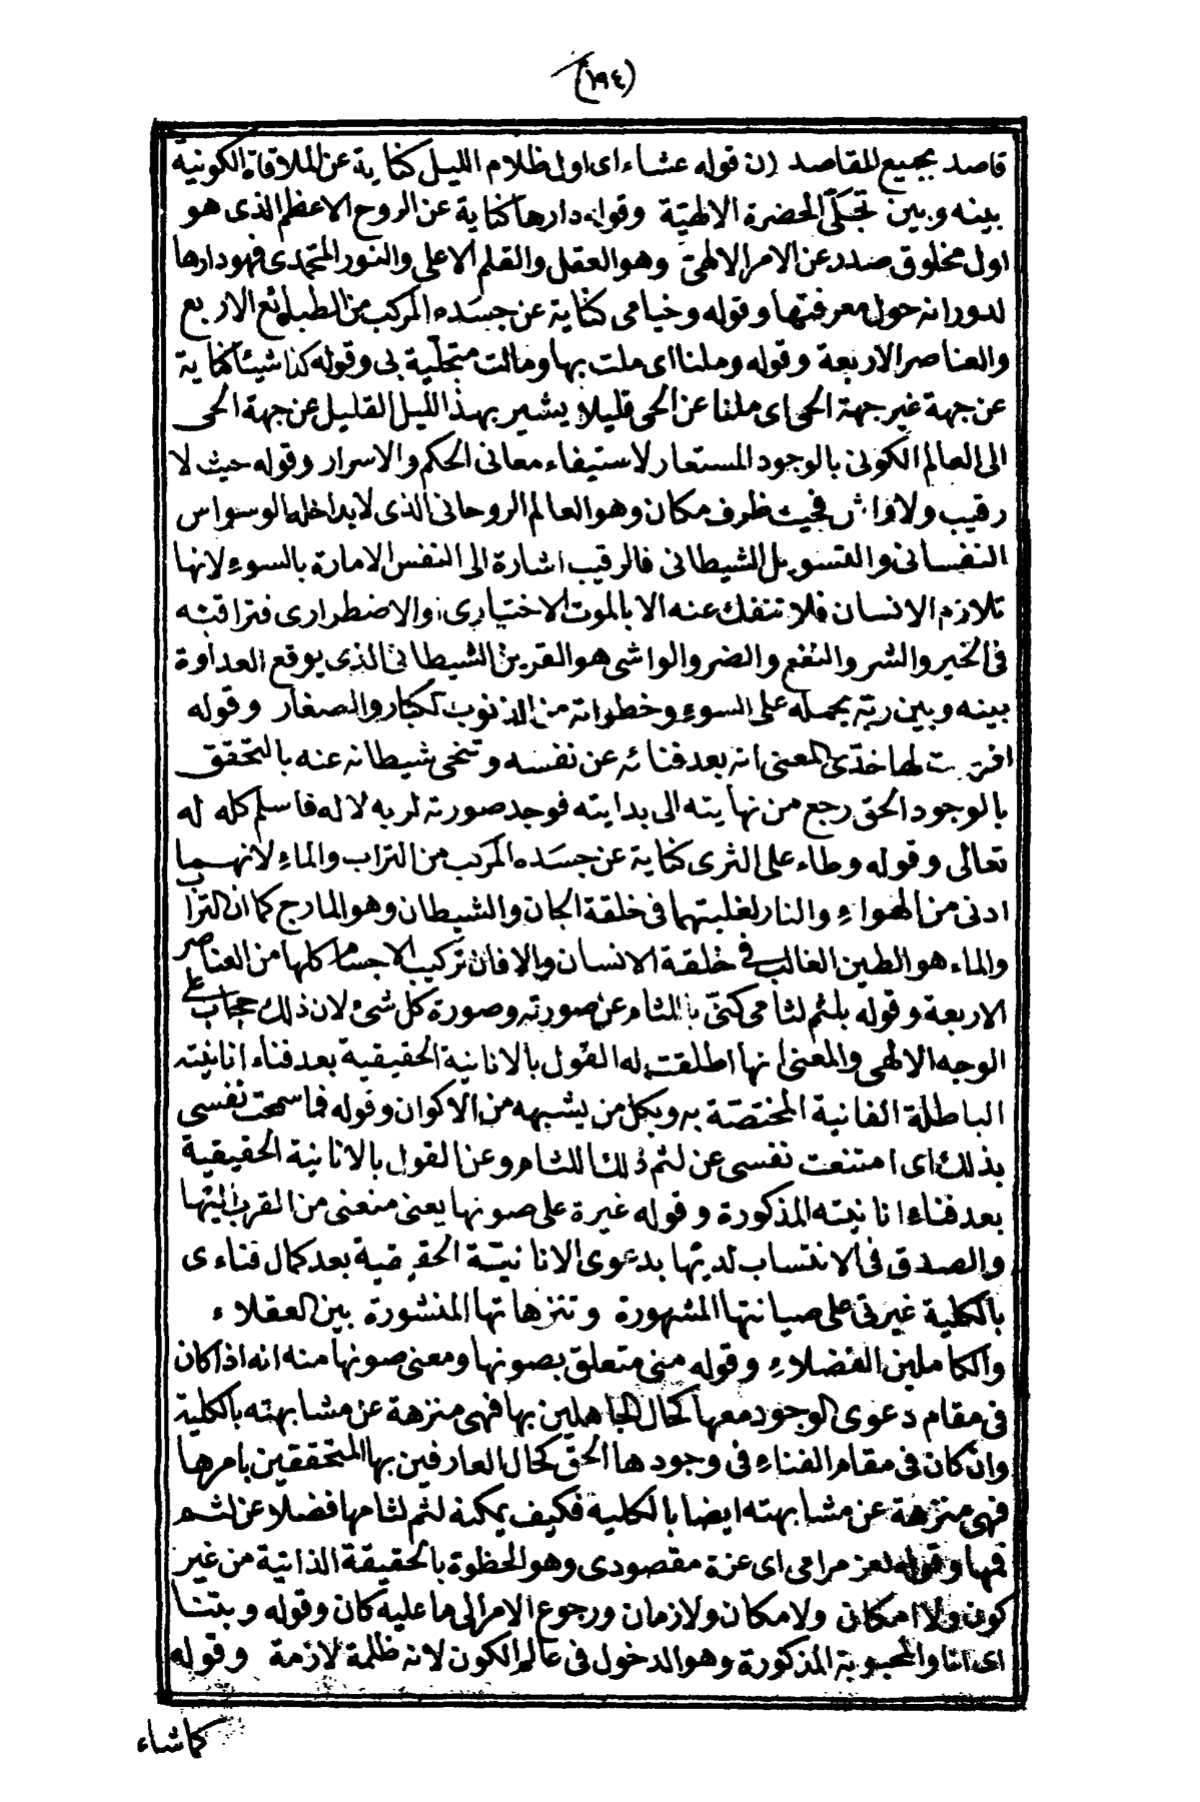 (١٩٤)
قاصد بجميع المقاصد (ن قوله عشاء اى اول ظلام الليل كناية عن الملاقاة الكونية
بينه وبين تجلّى الحضرة الالهيّة وقوله دارها كناية عن الروح الاعظم الذى هو
اول مخلوق صدر عن الامر الالهىّ وهو العقل والقلم الاعلى والنور المحمدى فهو دارها
لدورانه حول معرفتها وقوله وخيامى كناية عن جسَده المركب من الطبائع الاربع
والعناصر الاربعة وقوله وملنا اى ملت بها ومالت متجلّية بى وقوله كذا شيئا كناية
عن جهة غير جهة الحى اى ملنا عن الحى قليلا يشير بهذا الليل القليل عن جهة الحى
الى العالم الكونى بالوجود المستعار لاستيفاء معانى الحكم والاسرار وقوله حيث لا
رقيب ولا واش فحيث ظرف مكان وهو العالم الروحانى الذى لا يداخله الوسواس
النفسانى والتسويل الشيطانى فالرقيب اشارة الى النفس الامارة بالسوء لانها
تلازم الانسان فلا تنفك عنه الا بالموت الاختيارى او الاضطرارى فتراقبه
فى الخير والشر والنفع والضر والواشى هو القرين الشيطانى الذى يوقع العداوة
بينه وبين ربّه بحمله على السوء وخطواته من الذنوب الكبار والصغار وقوله
افرشت لها خدّى المعنى انه بعد فنائه عن نفسه وتنحى شيطانه عنه بالتحقق
بالوجود الحق رجع من نهايته الى بدايته فوجد صورته لربه لا له فاسلم كله له
تعالى وقوله وطاء على الثرى كناية عن جسَده المركب من التراب والماء لانهما
ادنى من الهواء والنار لغلبتهما فى خلقة الجان والشيطان وهو المارج كما ان التراب
والماء هو الطين الغالب فى خلقة الانسان والا فان تركيب الاجسام كلها من العناصر
الاربعة وقوله بلثم لثامى كنّى باللثام عن صورته وصورة كل شئ لان ذلك حجاب على
الوجه الالهى والمعنى انها اطلقت له القول بالانانية الحقيقية بعد فناء انانيته
الباطلة الفانية المختصّة به وبكل من يشبهه من الاكوان وقوله فما سمحت نفسى
بذلك اى امتنعت نفسى عن لثم ذلك اللثام وعن القول بالانانية الحقيقية
بعد فناء انانيته المذكورة وقوله غيرة على صونها يعنى منعنى من القرب اليها
والصدق فى الانتساب لديها بدعوى الانانيّة الحقيقية بعد كمال فناءى
بالكلية غيرتى على صيانتها المشهورة وتنزهاتها المنشورة بين العقلاء
والكاملين الفضلاء وقوله منى متعلق بصونها ومعنى صونها منه انه اذا كان
فى مقام دعوى الوجود معها كحال الجاهلين بها فهى منزهة عن مشابهته بالكلية
وان كان فى مقام الفناء فى وجودها الحقّ كحال العارفين بها المتحققين بامرها
فهى منزهة عن مشابهته ايضا بالكلية فكيف يمكنه لثم لثامها فضلا عن لثم
فمها وقوله لعز مرامى اى عزة مقصودى وهو الحظوة بالحقيقة الذاتية من غير
كون ولا امكان ولا مكان ولا زمان ورجوع الامر الى ما عليه كان وقوله وبتنا
اى انا والمحبوبة المذكورة وهو الدخول فى عالم الكون لانه ظلمة لازمة وقوله
كما شاء